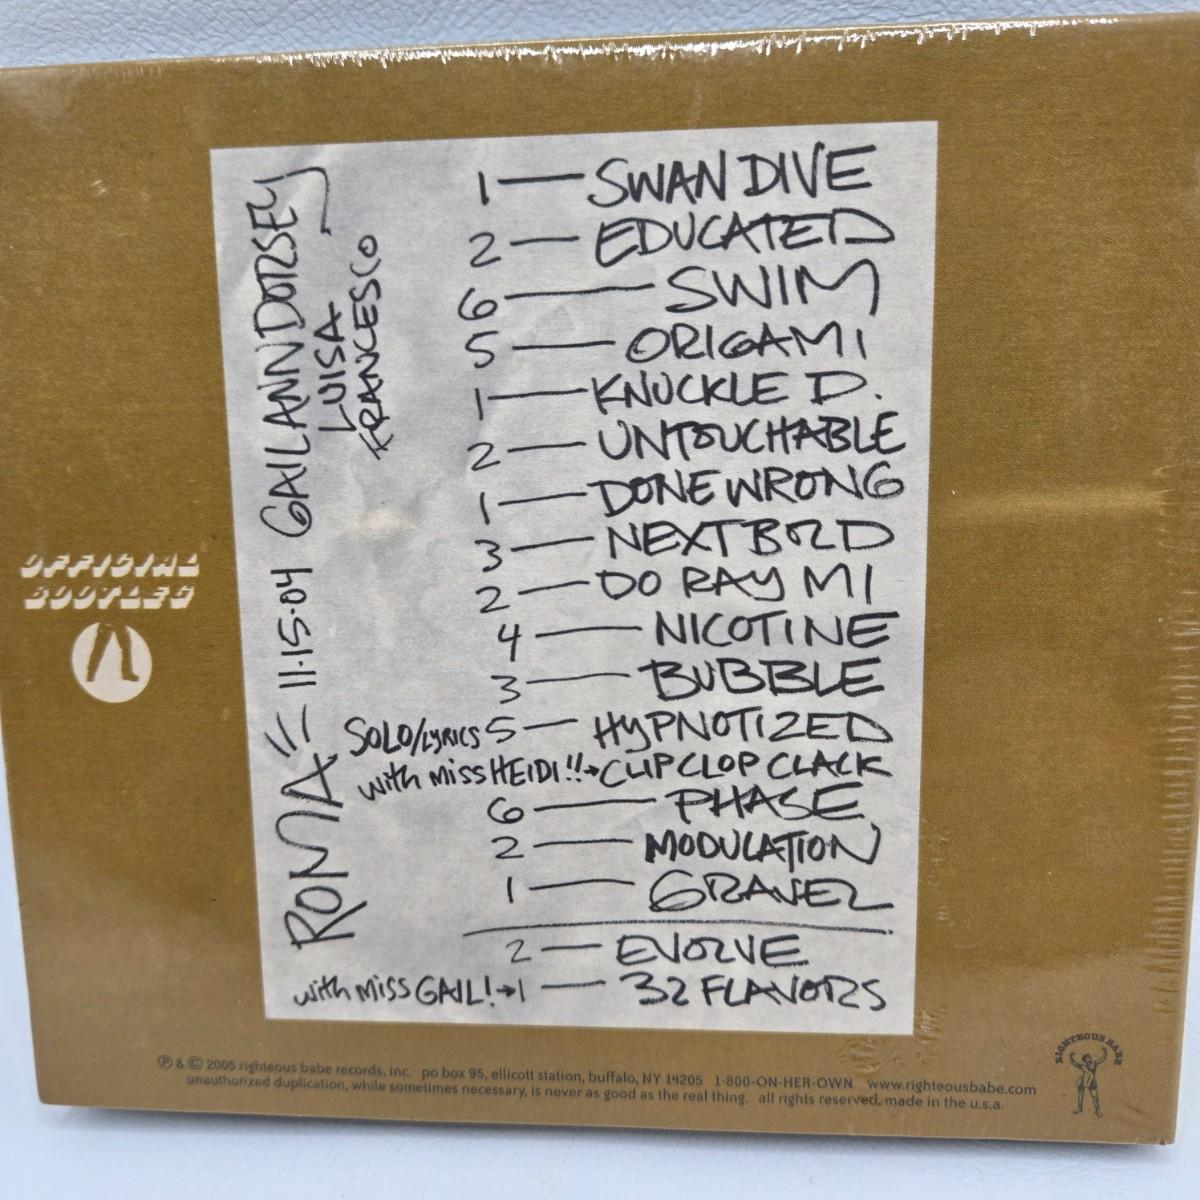 1 — SWAN DIVE
2 — EDUCATED
6 — SWIM
5 — ORIGAMI
1 — KNUCKLE D.
2 — UNTOUCHABLE
1 — DONE WRONG
3 — NEXT BOLD
2 — DO RAY MI
4 — NICOTINE
3 — BUBBLE
SOLO/LYRICS 5 — HYPNOTIZED
with MISS HEIDI!! → CLIP CLOP CLACK
6 — PHASE
2 — MODULATION
1 — GRAVEL
2 — EVOLVE
with MISS GAIL! → 1 — 32 FLAVORS
ROMA 11·15·04 GAIL ANN DORSEY
LUISA
FRANCESCO
OFFICIAL
BOOTLEG
℗ & © 2005 righteous babe records, inc. po box 95, ellicott station, buffalo, NY 14205 1-800-ON-HER-OWN www.righteousbabe.com
unauthorized duplication, while sometimes necessary, is never as good as the real thing. all rights reserved, made in the u.s.a.
RIGHTEOUS BABE